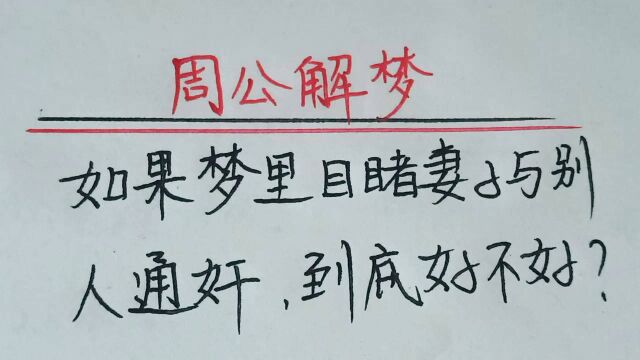 周公解梦
如果梦里目睹妻子与别
人通奸，到底好不好？